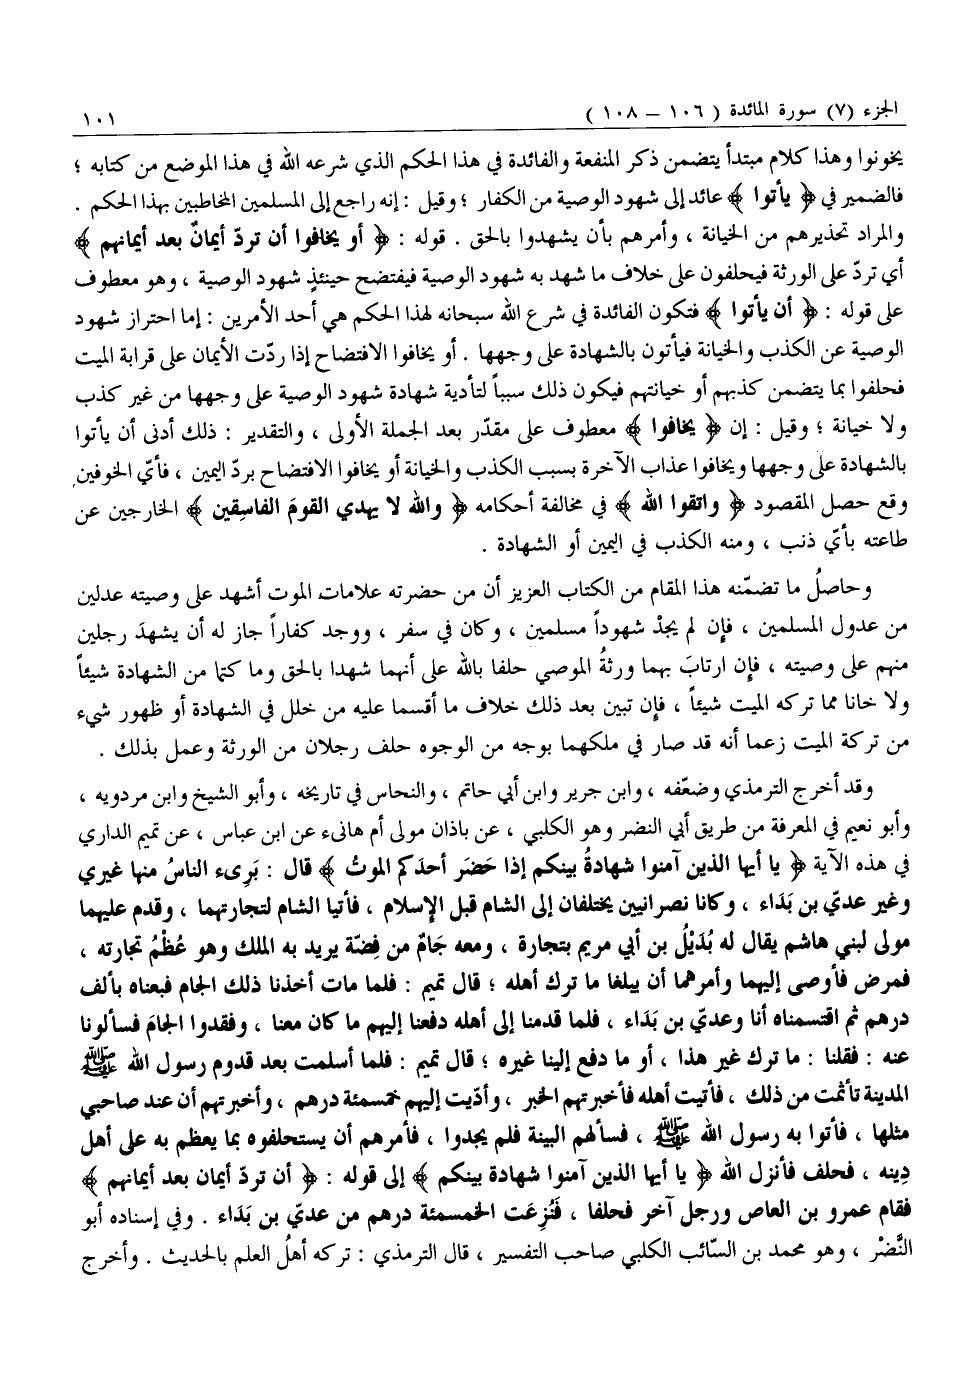 الجزء (٧) سورة المائدة ( ١٠٦ – ١٠٨ )
١٠١
يخونوا وهذا كلام مبتدأ يتضمن ذكر المنفعة والفائدة في هذا الحكم الذي شرعه الله في هذا الموضع من كتابه ؛
فالضمير في ﴿ يأتوا ﴾ عائد إلى شهود الوصية من الكفار ؛ وقيل : إنه راجع إلى المسلمين المخاطبين بهذا الحكم .
والمراد تحذيرهم من الخيانة ، وأمرهم بأن يشهدوا بالحق . قوله : ﴿ أو يخافوا أن تردّ أيمانٌ بعد أيمانهم ﴾
أي تردّ على الورثة فيحلفون على خلاف ما شهد به شهود الوصية فيفتضح حينئذٍ شهود الوصية ، وهو معطوف
على قوله : ﴿ أن يأتوا ﴾ فتكون الفائدة في شرع الله سبحانه لهذا الحكم هي أحد الأمرين : إما احتراز شهود
الوصية عن الكذب والخيانة فيأتون بالشهادة على وجهها . أو يخافوا الافتضاح إذا ردّت الأيمان على قرابة الميت
فحلفوا بما يتضمن كذبهم أو خيانتهم فيكون ذلك سبباً لتأدية شهادة شهود الوصية على وجهها من غير كذب
ولا خيانة ؛ وقيل : إن ﴿ يخافوا ﴾ معطوف على مقدّر بعد الجملة الأولى ، والتقدير : ذلك أدنى أن يأتوا
بالشهادة على وجهها ويخافوا عذاب الآخرة بسبب الكذب والخيانة أو يخافوا الافتضاح بردّ اليمين ، فأيّ الخوفين
وقع حصل المقصود ﴿ واتقوا الله ﴾ في مخالفة أحكامه ﴿ والله لا يهدي القومَ الفاسِقين ﴾ الخارجين عن
طاعته بأيّ ذنب ، ومنه الكذب في اليمين أو الشهادة .
وحاصلُ ما تضمّنه هذا المقام من الكتاب العزيز أن من حضرته علامات الموت أشهد على وصيته عدلين
من عدول المسلمين ، فإن لم يجدْ شهوداً مسلمين ، وكان في سفر ، ووجد كفاراً جاز له أن يشهدَ رجلين
منهم على وصيته ، فإن ارتابَ بهما ورثةُ الموصي حلفا بالله على أنهما شهدا بالحق وما كتما من الشهادة شيئاً
ولا خانا مما تركه الميت شيئاً ، فإن تبين بعد ذلك خلاف ما أقسما عليه من خلل في الشهادة أو ظهور شيء
من تركة الميت زعما أنه قد صار في ملكهما بوجه من الوجوه حلف رجلان من الورثة وعمل بذلك .
وقد أخرج الترمذي وضعّفه ، وابن جرير وابن أبي حاتم ، والنحاس في تاريخه ، وأبو الشيخ وابن مردويه ،
وأبو نعيم في المعرفة من طريق أبي النضر وهو الكلبي ، عن باذان مولى أم هانىء عن ابن عباس ، عن تميم الداري
في هذه الآية ﴿ يا أيها الذين آمنوا شهادةُ بينكم إذا حَضَرَ أحدَكم الموتُ ﴾ قال : بَرِىء الناسُ منها غيري
وغير عديّ بن بَدَاء ، وكانا نصرانيين يختلفان إلى الشام قبل الإسلام ، فأتيا الشام لتجارتهما ، وقدم عليهما
مولى لبني هاشم يقال له بُدَيْلُ بن أبي مريم بتجارة ، ومعه جَامٌ من فِضّة يريد به الملك وهو عُظْمُ تجارته ،
فمرض فأوصى إليهما وأمرهما أن يبلغا ما ترك أهله ؛ قال تميم : فلما مات أخذنا ذلك الجام فبعناه بألف
درهم ثم اقتسمناه أنا وعديّ بن بَدَاء ، فلما قدمنا إلى أهله دفعنا إليهم ما كان معنا ، وفقدوا الجامَ فسألونا
عنه : فقلنا : ما ترك غير هذا ، أو ما دفع إلينا غيره ؛ قال تميم : فلما أسلمت بعد قدوم رسول الله ﷺ
المدينة تأثمت من ذلك ، فأتيت أهله فأخبرتهم الخبر ، وأدّيت إليهم خمسمئة درهم ، وأخبرتهم أن عند صاحبي
مثلها ، فأتوا به رسول الله ﷺ ، فسألهم البينة فلم يجدوا ، فأمرهم أن يستحلفوه بما يعظم به على أهل
دِينه ، فحلف فأنزل الله ﴿ يا أيها الذين آمنوا شهادة بينكم ﴾ إلى قوله : ﴿ أن تردّ أيمان بعد أيمانهم ﴾
فقام عمرو بن العاص ورجل آخر فحلفا ، فَنُزِعَت الخمسمئة درهم من عديّ بن بَدَاء . وفي إسناده أبو
النَّضْر ، وهو محمد بن السّائب الكلبي صاحب التفسير ، قال الترمذي : تركه أهلُ العلم بالحديث . وأخرج